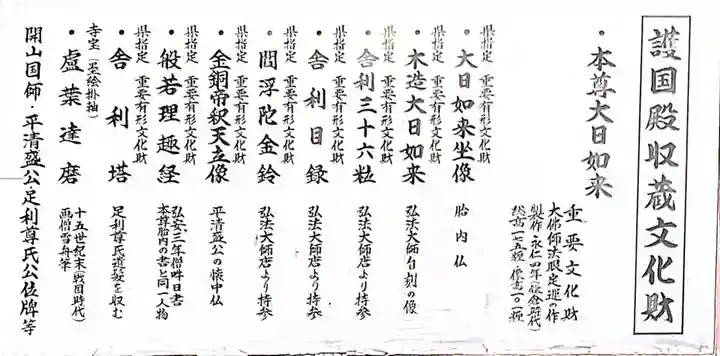 護国殿収蔵文化財
・本尊大日如来
重要文化財
大佛師法眼定運の作
製作・永仁四年(鎌倉時代)
総高一七五糎 像高一〇一糎
県指定 重要有形文化財
・大日如来坐像 胎内仏
県指定 重要有形文化財
・木造大日如来 弘法大師自刻の像
県指定 重要有形文化財
・舎利三十六粒 弘法大師唐より持参
県指定 重要有形文化財
・舎利目録 弘法大師唐より持参
県指定 重要有形文化財
・閻浮陀金鈴 弘法大師唐より持参
県指定 重要有形文化財
・金銅帝釈天立像 平清盛公の懐中仏
県指定 重要有形文化財
・般若理趣経
弘安三年僧 日書
本尊胎内の書と同一人物
県指定 重要有形文化財
・舎利塔 足利尊氏遺髪を収む
寺宝(墨絵掛軸)
・盧葉達磨
十五世紀末(戦国時代)
画僧雪舟筆
開山国師・平清盛公・足利尊氏公位牌等